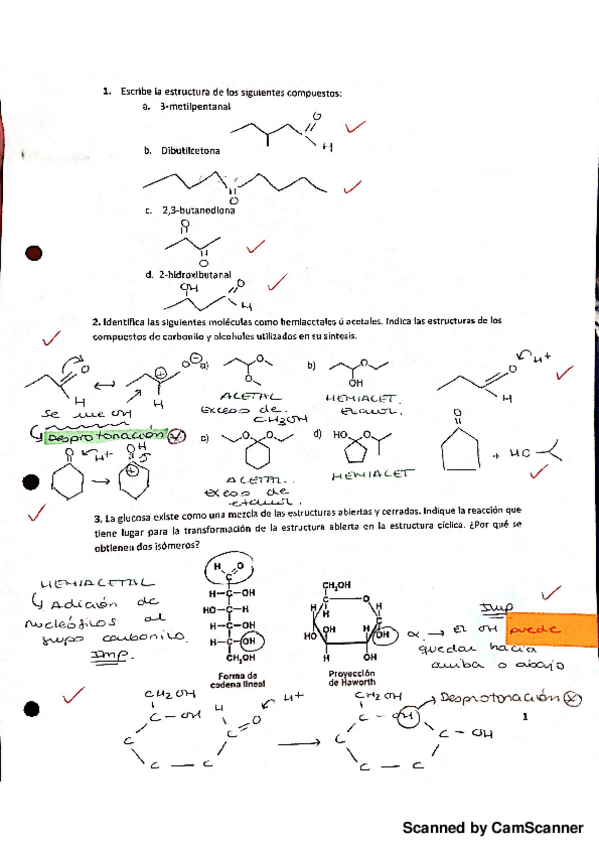 1. Escribe la estructura de los siguientes compuestos:
a. 3-metilpentanal
O
H
b. Dibutilcetona
O
c. 2,3-butanodiona
O
O
d. 2-hidroxibutanal
OH
O
H
2. Identifica las siguientes moléculas como hemiacetales ú acetales. Indica las estructuras de los
compuestos de carbonilo y alcoholes utilizados en su síntesis.
a)
ACETAL
exceso de
CH3OH
b)
OH
HEMIACET.
etanol.
H+
se une OH
Desprotonación
c)
ACETAL.
exceso de
etanol.
d) HO
HEMIACET
+ HO
3. La glucosa existe como una mezcla de las estructuras abiertas y cerradas. Indique la reacción que
tiene lugar para la transformación de la estructura abierta en la estructura cíclica. ¿Por qué se
obtienen dos isómeros?
HEMIACETAL
Adición de
nucleófilos al
grupo carbonilo.
Imp.
H O
C
H-C-OH
HO-C-H
H-C-OH
H-C-OH
CH2OH
Forma de
cadena lineal
CH2OH
O
H
H
OH
H
HO
OH
H
OH
Proyección
de Haworth
Imp
α. → El OH puede
quedar hacia
arriba o abajo
CH2OH
C - OH
H
C
O
H+
C
C
C
CH2OH
C - OH
Desprotonación
C - OH
C
C
C
1
Scanned by CamScanner